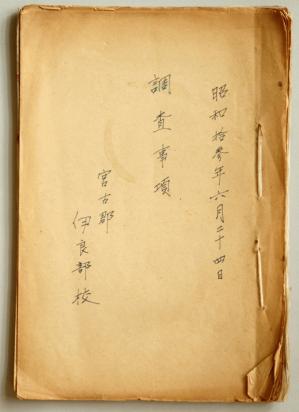 昭和拾参年六月二十四日
調査事項
宮古郡
伊良部校